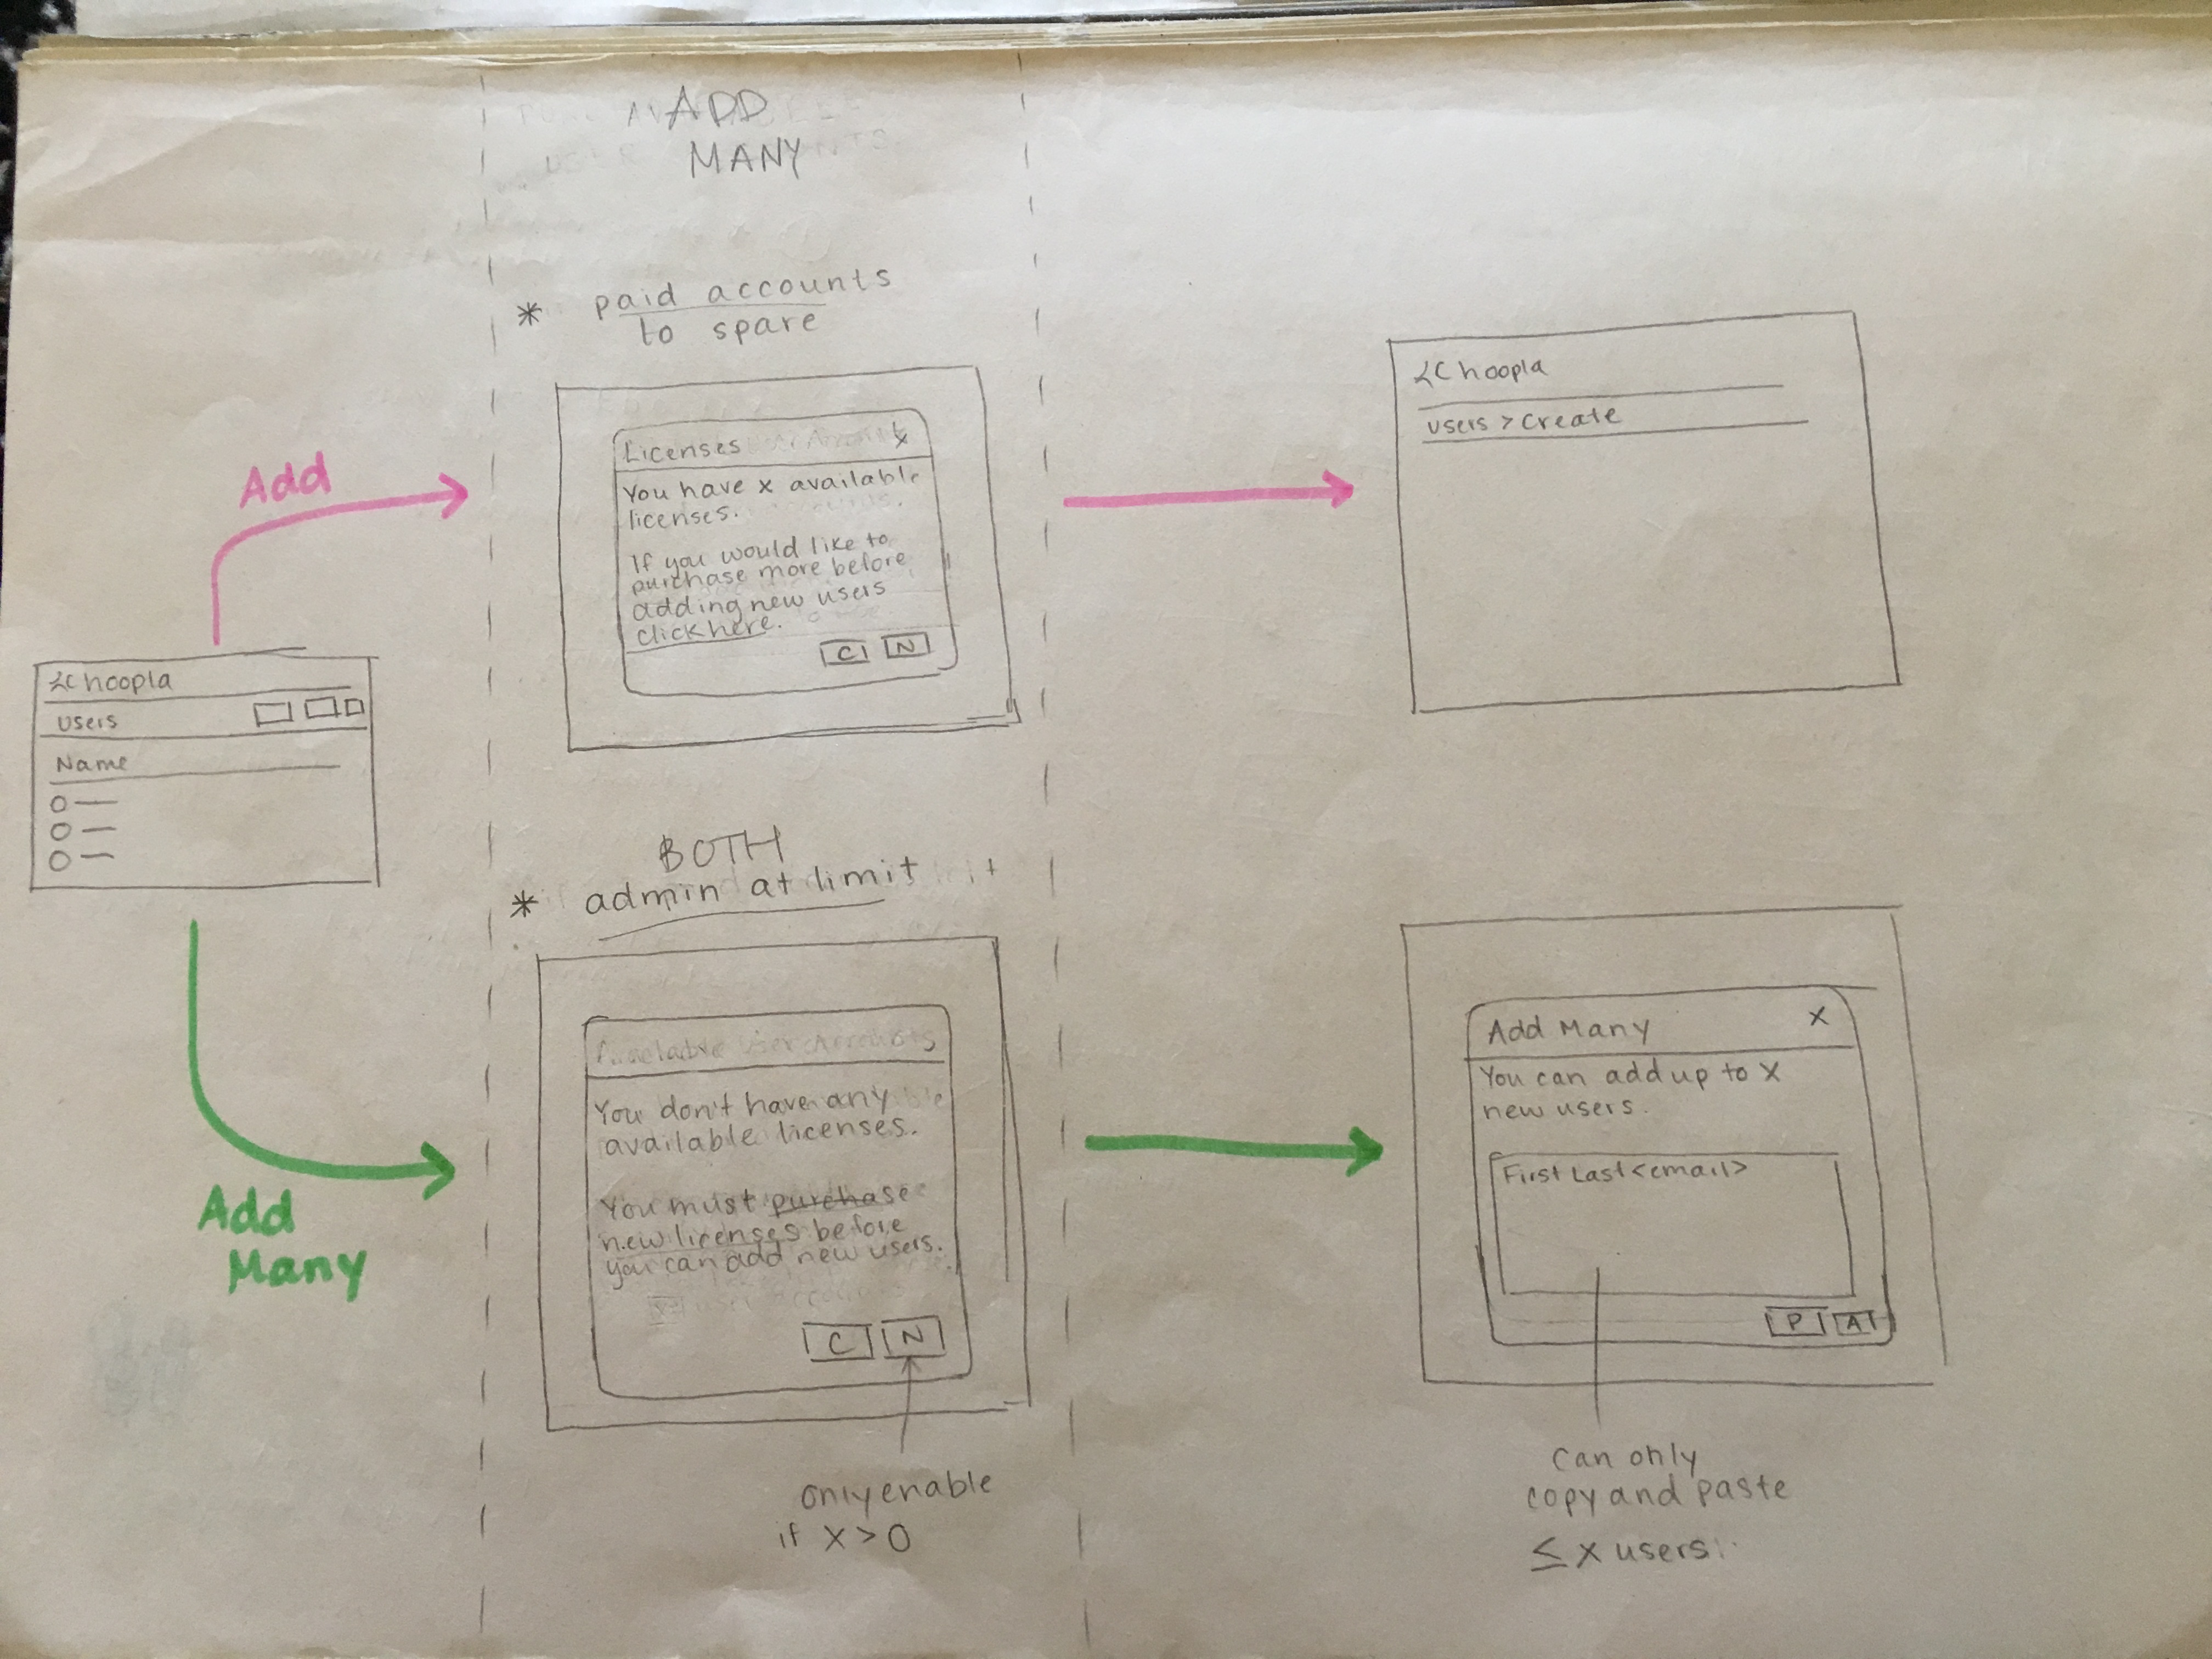 ADD
MANY
* paid accounts
to spare
Licenses x
You have x available
licenses.
If you would like to
purchase more before
adding new users
click here.
C N
hoopla
users > create
Add
hoopla
users
Name
BOTH
* admin at limit
Available User Accounts
You don't have any
available licenses.
You must purchase
new licenses before
you can add new users.
C N
only enable
if x > 0
Add
Many
Add Many x
You can add up to x
new users.
First Last <email>
P A
can only
copy and paste
≤ x users